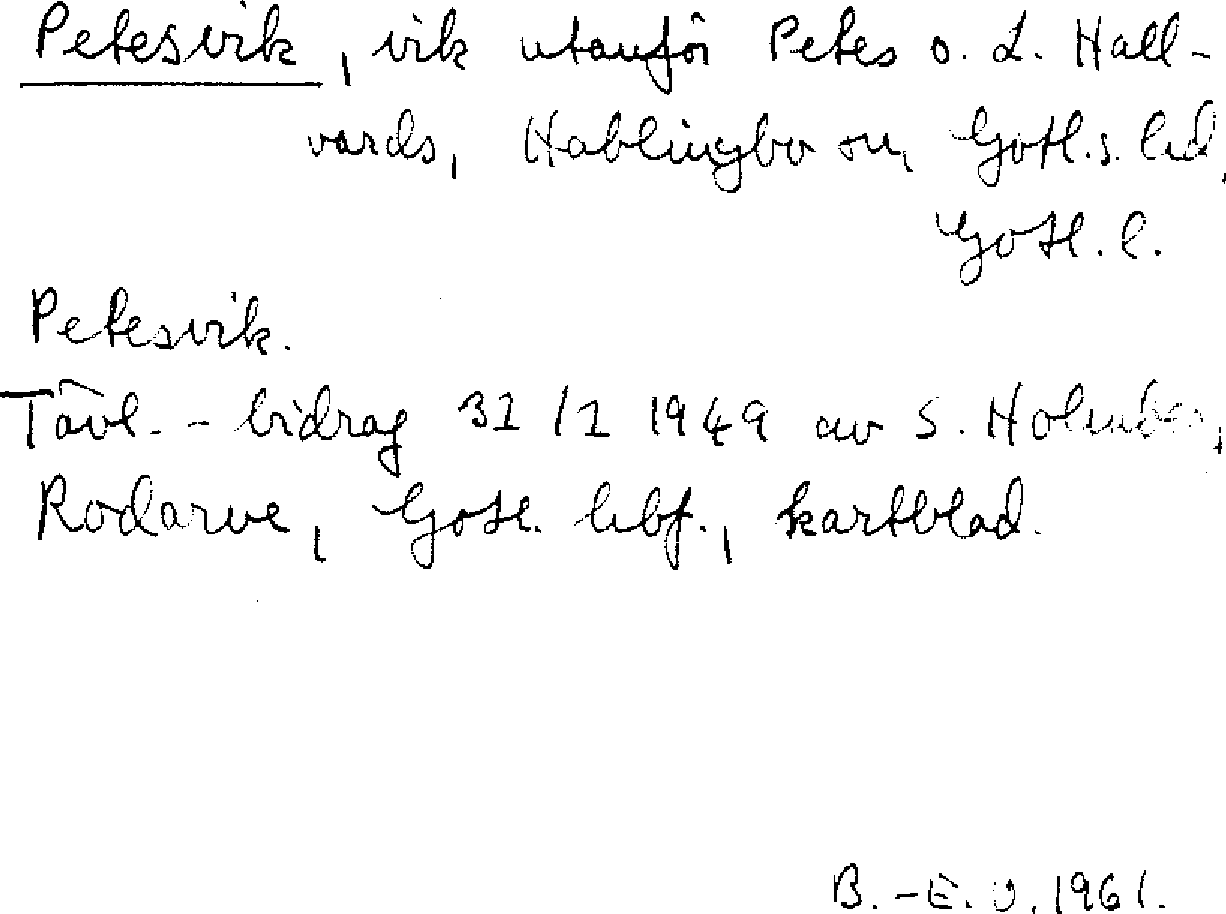 Petesvik, vik utanför Petes o. L. Hall-
vards, Hablingbo sn, Gotl.s. hd,
Gotl. l.
Petesvik.
Tävl.-bidrag 31/1 1949 av S. Holmber,
Rodarve, Gotl. hbf., kartblad.
B.-E. O. 1961.